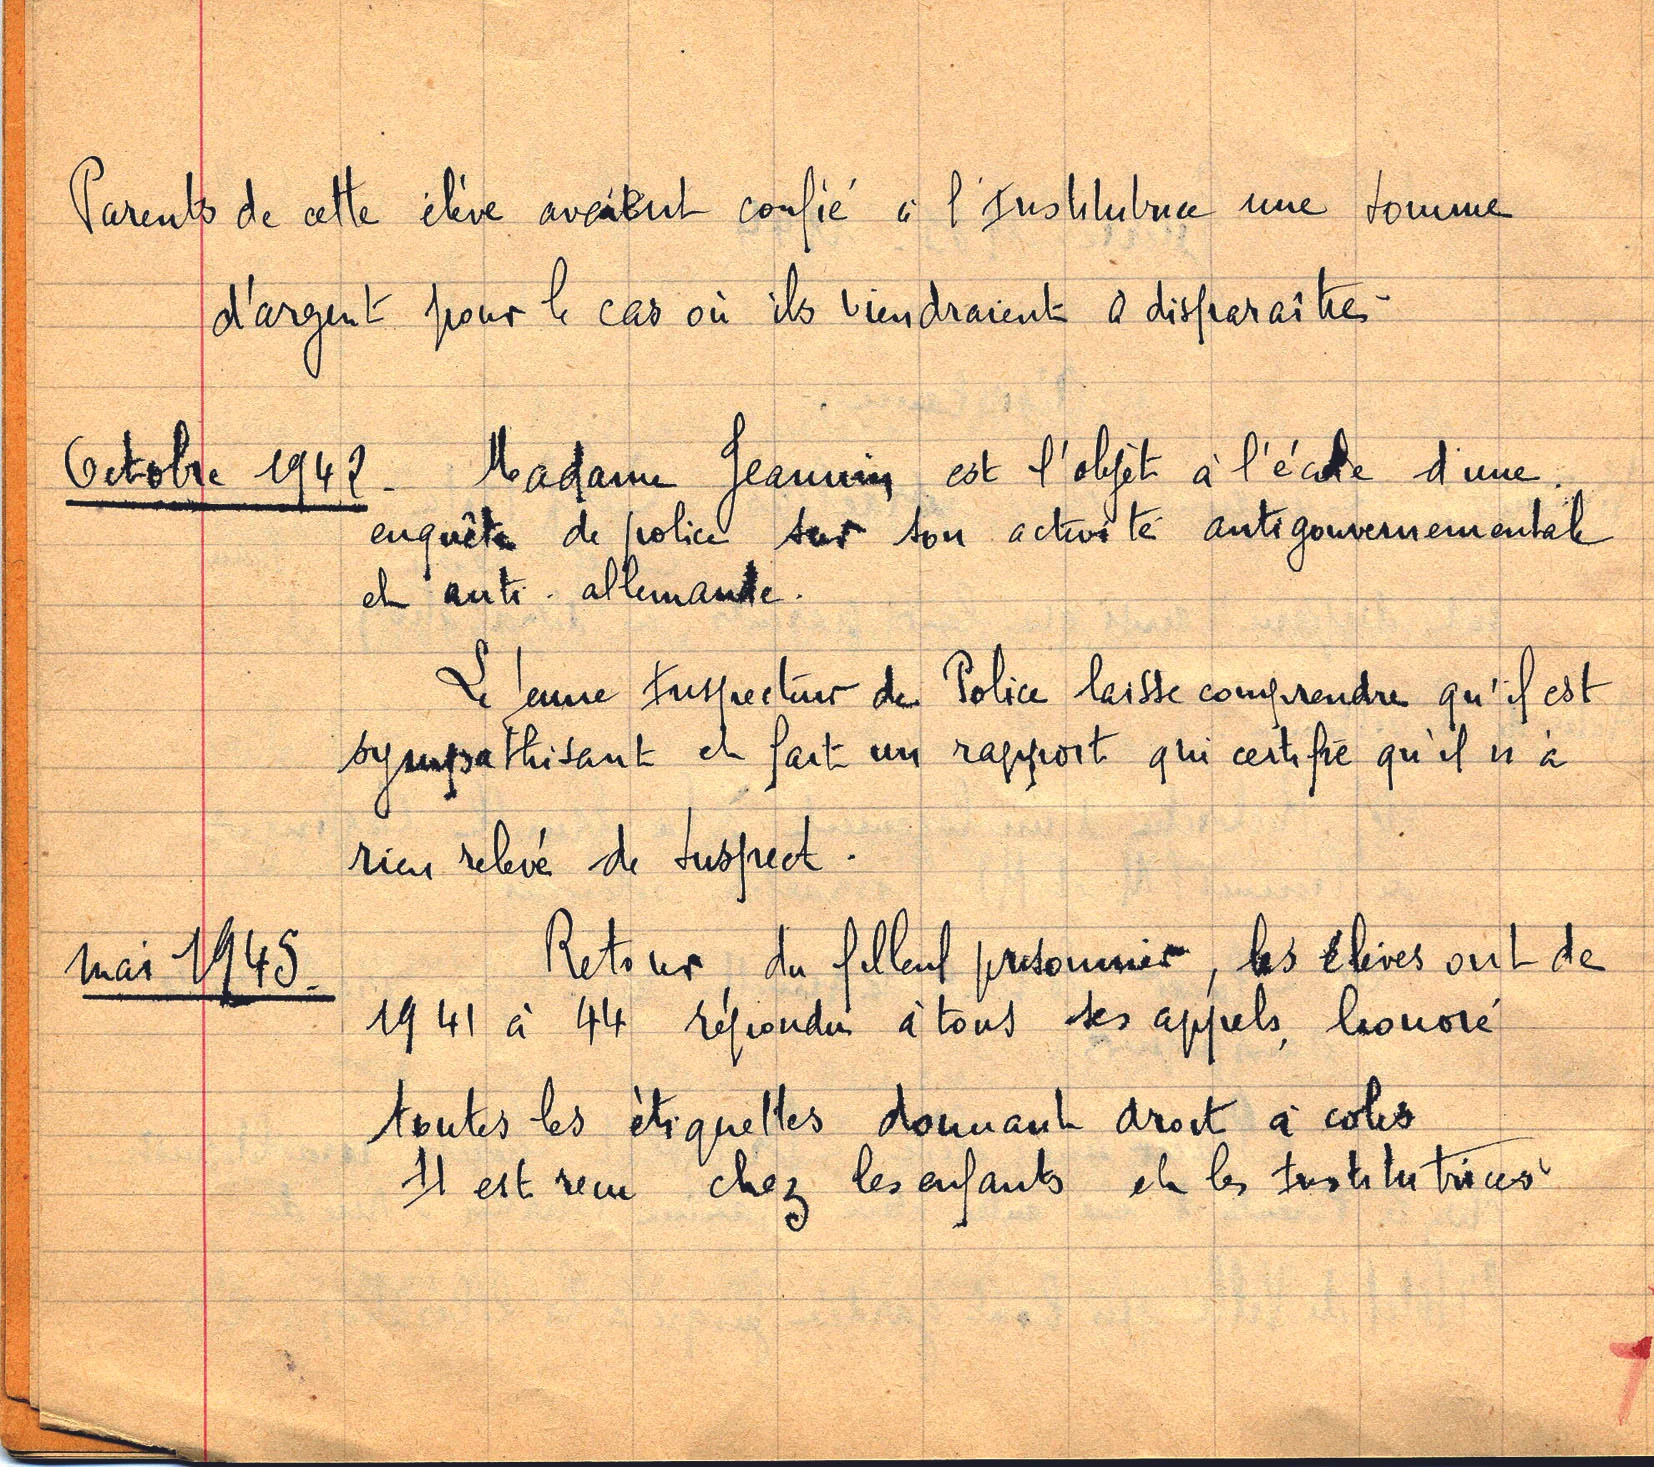 Parents de cette élève avaient confié à l'Institutrice une somme
d'argent pour le cas où ils viendraient à disparaître -
Octobre 1942 - Madame Jeannin est l'objet à l'école d'une
enquête de police sur son activité antigouvernementale
et anti-allemande.
Le jeune Inspecteur de Police laisse comprendre qu'il est
sympathisant et fait un rapport qui certifie qu'il n'a
rien relevé de suspect.
mai 1945. Retour du filleul prisonnier, les élèves ont de
1941 à 44 répondu à tous ses appels, honoré
toutes les étiquettes donnant droit à colis
Il est reçu chez les enfants et les Institutrices